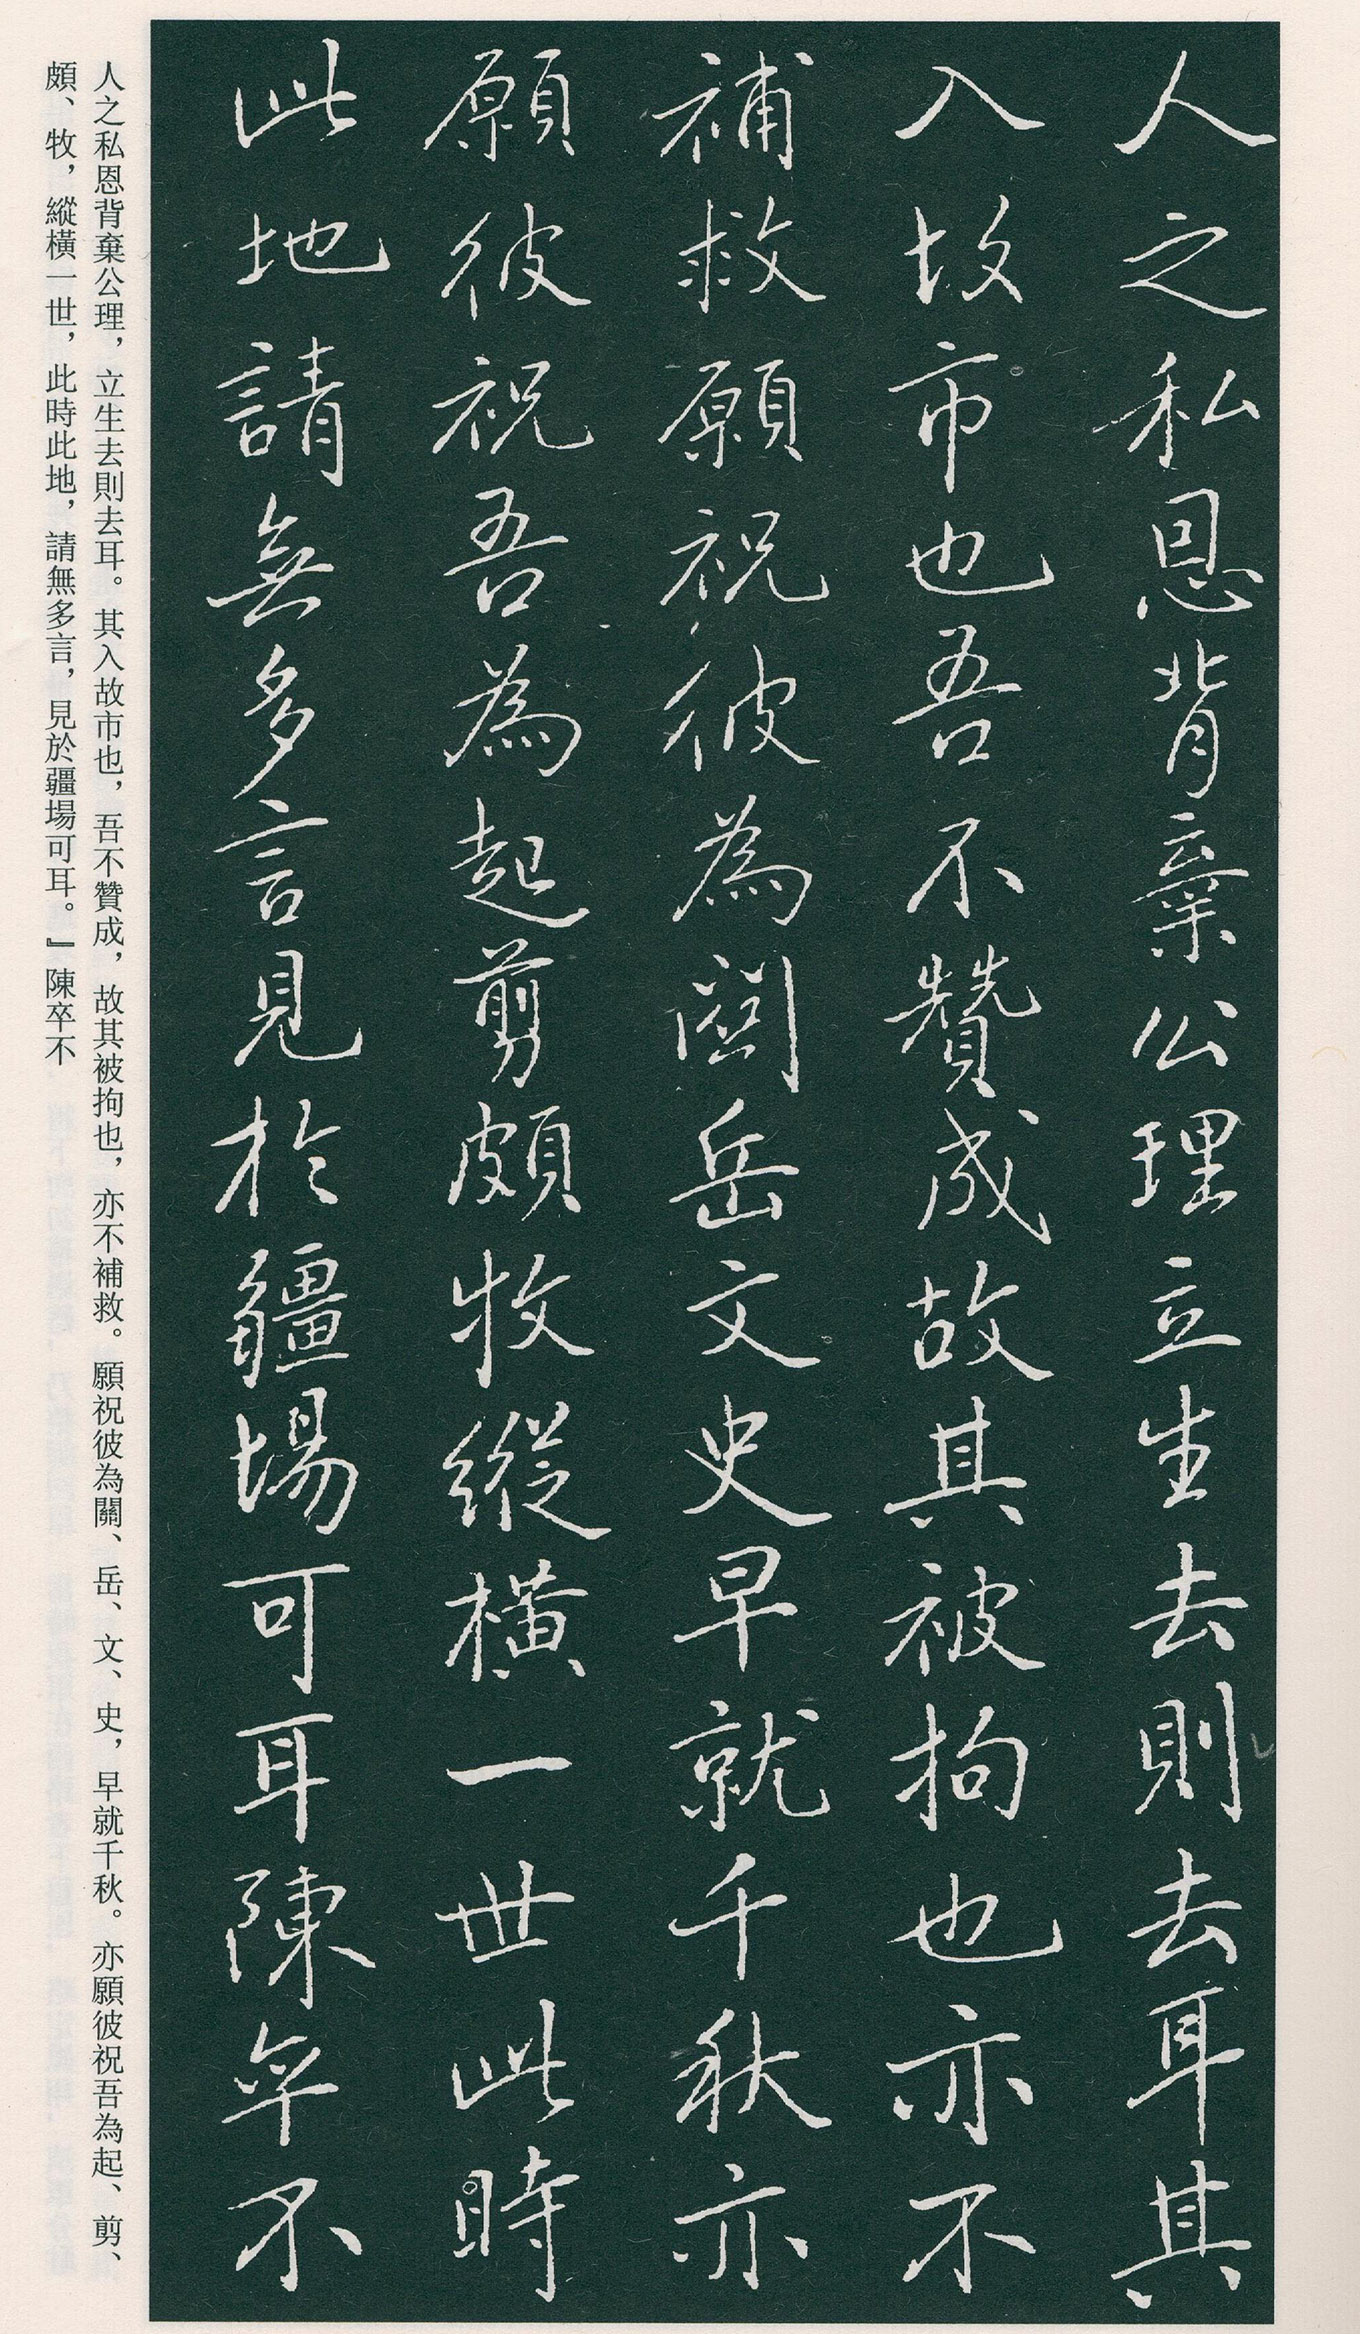 人之私恩背棄公理立生去則去耳其
入故市也吾不贊成故其被拘也亦不
補救願祝彼為關岳文史早就千秋亦
願彼祝吾為起剪頗牧縱橫一世此時
此地請無多言見於疆場可耳陳卒不
人之私恩背棄公理，立生去則去耳。其入故市也，吾不贊成，故其被拘也，亦不補救。願祝彼為關、岳、文、史，早就千秋。亦願彼祝吾為起、剪、
頗、牧，縱橫一世，此時此地，請無多言，見於疆場可耳。』陳卒不